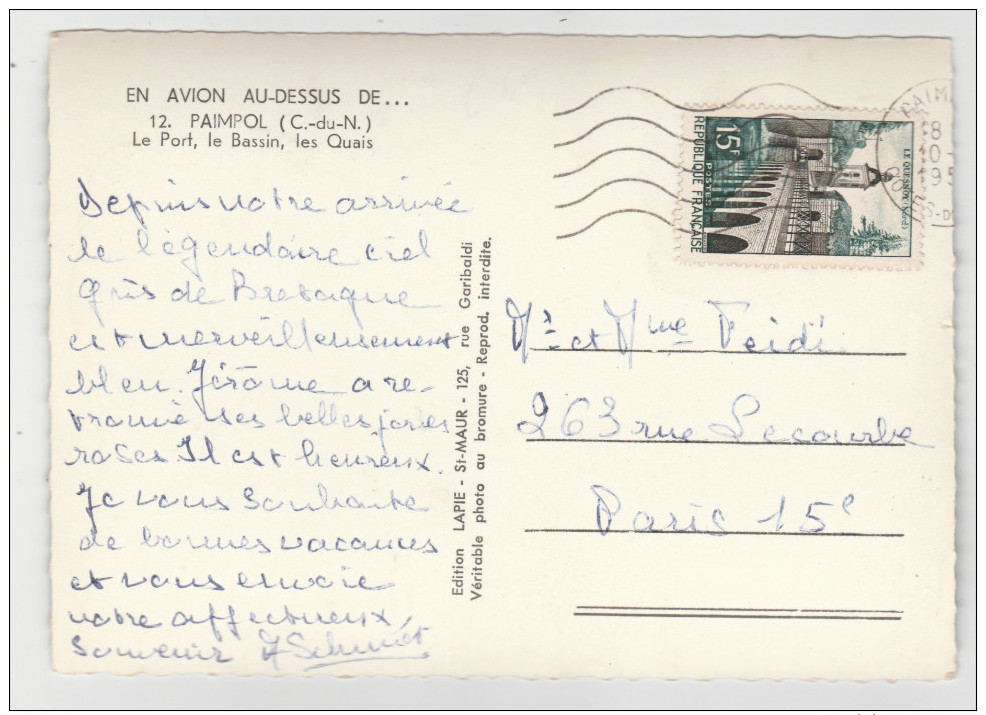 EN AVION AU-DESSUS DE...
12. PAIMPOL (C.-du-N.)
Le Port, le Bassin, les Quais
Depuis notre arrivée
le légendaire ciel
gris de Bretagne
est merveilleusement
bleu. Jérôme a re-
trouvé ses belles joues
roses Il est heureux.
Je vous souhaite
de bonnes vacances
et vous envoie
notre affectueux
souvenir
Edition LAPIE - St-MAUR - 125, rue Garibaldi
Véritable photo au bromure - Reprod. interdite.
15F
POSTES
REPUBLIQUE FRANÇAISE
LE QUESNOY
PAIM
Mr et Mme
263 rue Lecourbe
Paris 15e